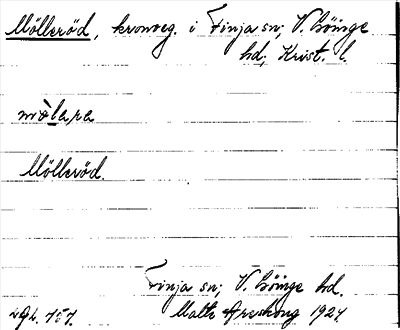 Mölleröd, kronoeg. i Finja sn; V. Göinge
hd; Krist. l.
mò̀lara
Mölleröd.
Finja sn; V. Göinge hd.
Malte Areskoug 1924